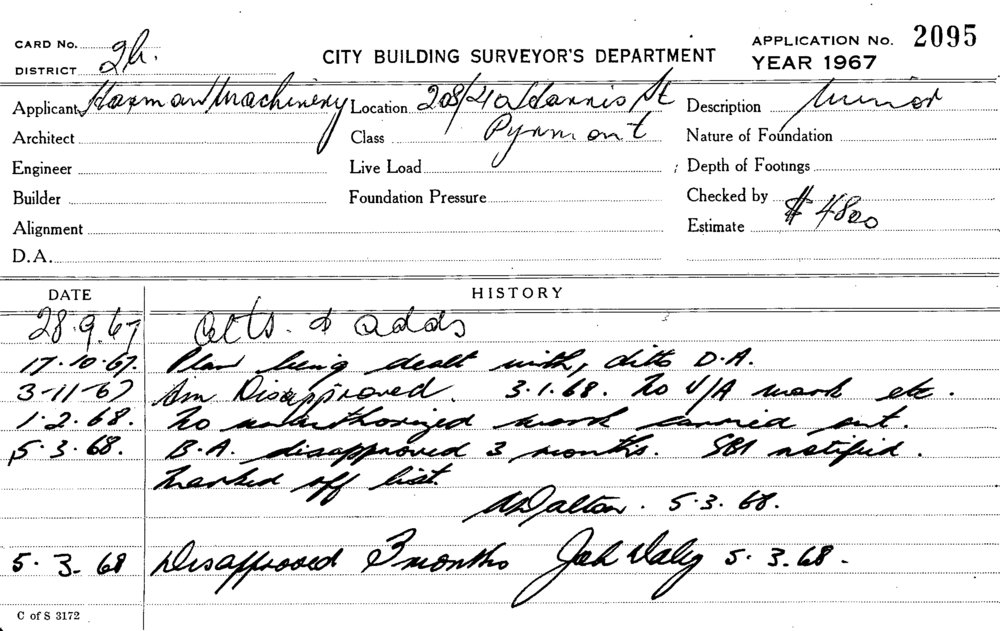 CARD No. 2h.
CITY BUILDING SURVEYOR'S DEPARTMENT
APPLICATION No. 2095
DISTRICT
YEAR 1967
Applicant Machinery Location 208/ St Description Minor
Architect Class Pyrmont Nature of Foundation
Engineer Live Load Depth of Footings
Builder Foundation Pressure Checked by
Alignment Estimate $ 4800
D.A.
DATE HISTORY
28.9.67 alts. & adds
17.10.67. Plan being dealt with, ditto D.A.
3-11-67 Disapproved. 3.1.68. No U/A work etc.
1.2.68. No unauthorized work carried out.
5.3.68. B.A. disapproved 3 months. SBI notified.
Marked off list.
Dalton. 5.3.68.
5.3.68 Disapproved 3 months Daly 5.3.68.
C of S 3172